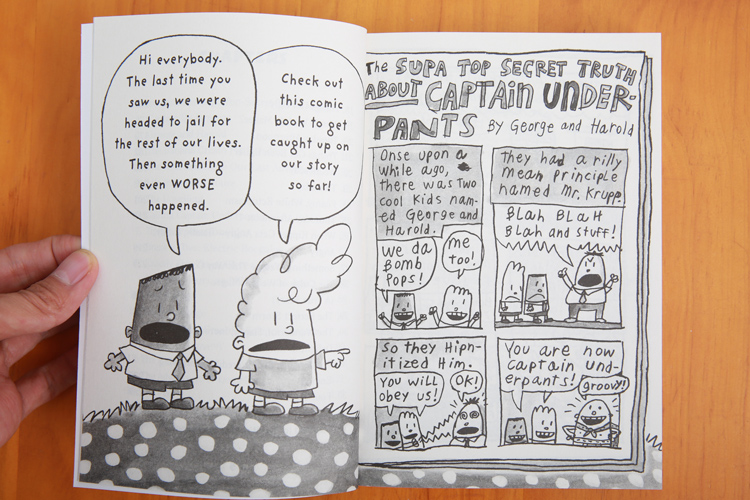 Hi everybody.
The last time you
saw us, we were
headed to jail for
the rest of our lives.
Then something
even WORSE
happened.
Check out
this comic
book to get
caught up on
our story
so far!
The SUPA TOP SECRET TRUTH
ABOUT CAPTAIN UNDER-
PANTS By George and Harold
Once upon a
while ago,
there was two
cool kids nam-
ed George and
Harold.
We da
Bomb
Pops!
me
too!
they had a rilly
mean principle
named Mr. Krupp.
BLAH BLAH
BLah and stuff!
so they Hipn-
itized Him.
You will
obey us!
OK!
You are now
captain und-
erpants!
groovy!